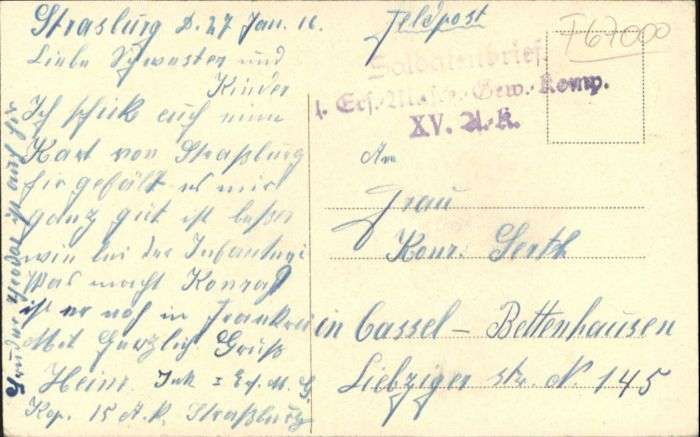 Strasburg d. 27 Jan. 16.
Liebe Schwester und
Kinder
Ich schick euch einen
Kart von Straßburg
hir gefällt es mir
ganz gut ist besser
wie bei der Infanteri
Was macht Konrad
ist er noch in Frankrei
Mit Herzlich Gruß
Heinr. I Ers. M. G.
Kop. 15 A.K. Straßburg
Bruder Theodor ist auch hir
Feldpost
Soldatenbrief.
1. Ers.-Masch.-Gew.-Komp.
XV. A.-K.
F67000
An
Frau
Konr. Gerth
in Cassel – Bettenhausen
Liebziger str. N. 145